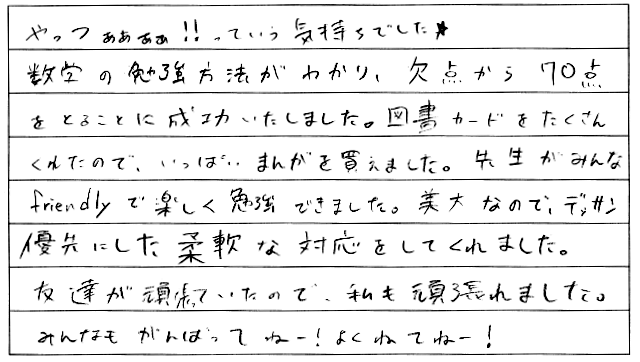 やっつぁぁぁぁ!!っていう気持ちでした★
数学の勉強方法がわかり、欠点から70点
をとることに成功いたしました。図書カードをたくさん
くれたので、いっぱいまんがを買えました。先生がみんな
friendlyで楽しく勉強できました。美大なので、デッサン
優先にした柔軟な対応をしてくれました。
友達が頑張っていたので、私も頑張れました。
みんなもがんばってねー!よくねてねー!